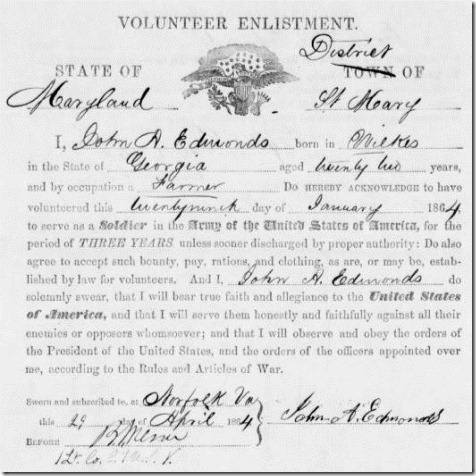 VOLUNTEER ENLISTMENT.
District
STATE OF TOWN OF
Maryland St Mary
I, John A. Edmonds born in Wilkes
in the State of Georgia aged twenty two years,
and by occupation a Farmer Do HEREBY ACKNOWLEDGE to have
volunteered this twentyninth day of January 1864,
to serve as a Soldier in the Army of the United States of America, for the
period of THREE YEARS unless sooner discharged by proper authority: Do also
agree to accept such bounty, pay, rations, and clothing, as are, or may be, estab-
lished by law for volunteers. And I, John A. Edmonds do
solemnly swear, that I will bear true faith and allegiance to the United States
of America, and that I will serve them honestly and faithfully against all their
enemies or opposers whomsoever; and that I will observe and obey the orders of
the President of the United States, and the orders of the officers appointed over
me, according to the Rules and Articles of War.
Sworn and subscribed to, at Norfolk Va
this 29 day of April 1864 John A. Edmonds
BEFORE
1 Lt. Co.